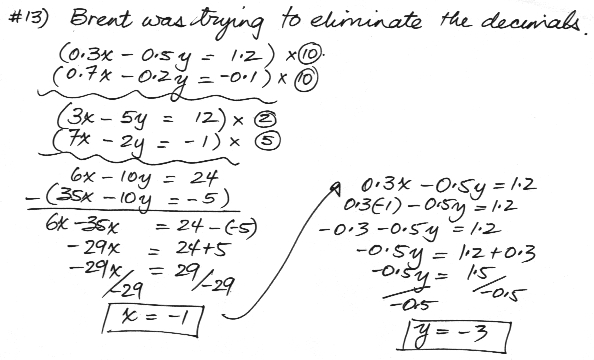 #13) Brent was trying to eliminate the decimals.
(0.3x - 0.5y = 1.2) x⑩.
(0.7x - 0.2y = -0.1) x ⑩
(3x - 5y = 12) x ②
(7x - 2y = -1) x ⑤
6x - 10y = 24
- (35x - 10y = -5)
6x - 35x = 24 - (-5)
- 29x = 24+5
- 29x/-29 = 29/-29
x = -1
0.3x - 0.5y = 1.2
0.3(-1) - 0.5y = 1.2
-0.3 - 0.5y = 1.2
-0.5y = 1.2 + 0.3
-0.5y/-0.5 = 1.5/-0.5
y = -3